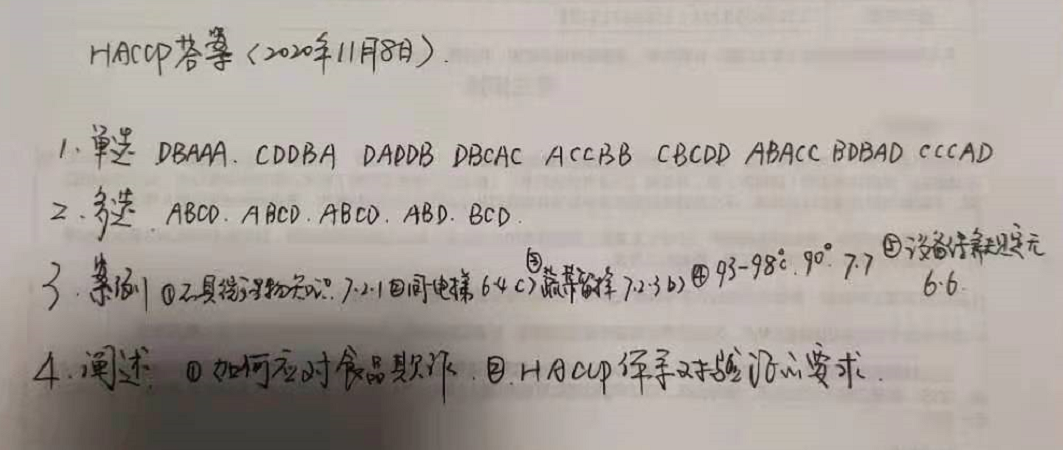 HACCP答案（2020年11月8日）.
1. 单选 DBAAA. CDDBA DADDB DBCAC ACCBB CBCDD ABACC BDBAD CCCAD
2. 多选. ABCD. ABCD. ABCD. ABD. BCD.
3. 案例 ①不具微生物知识. 7.2.1 ②同一电梯 6.4 c) ③蔬菜留样 7.2.3 b) ④ 93-98℃. 90° 7.7 ⑤设备保养规定无 6.6.
4. 阐述. ①如何应对食品欺诈. ②. HACCP体系对验证的要求.